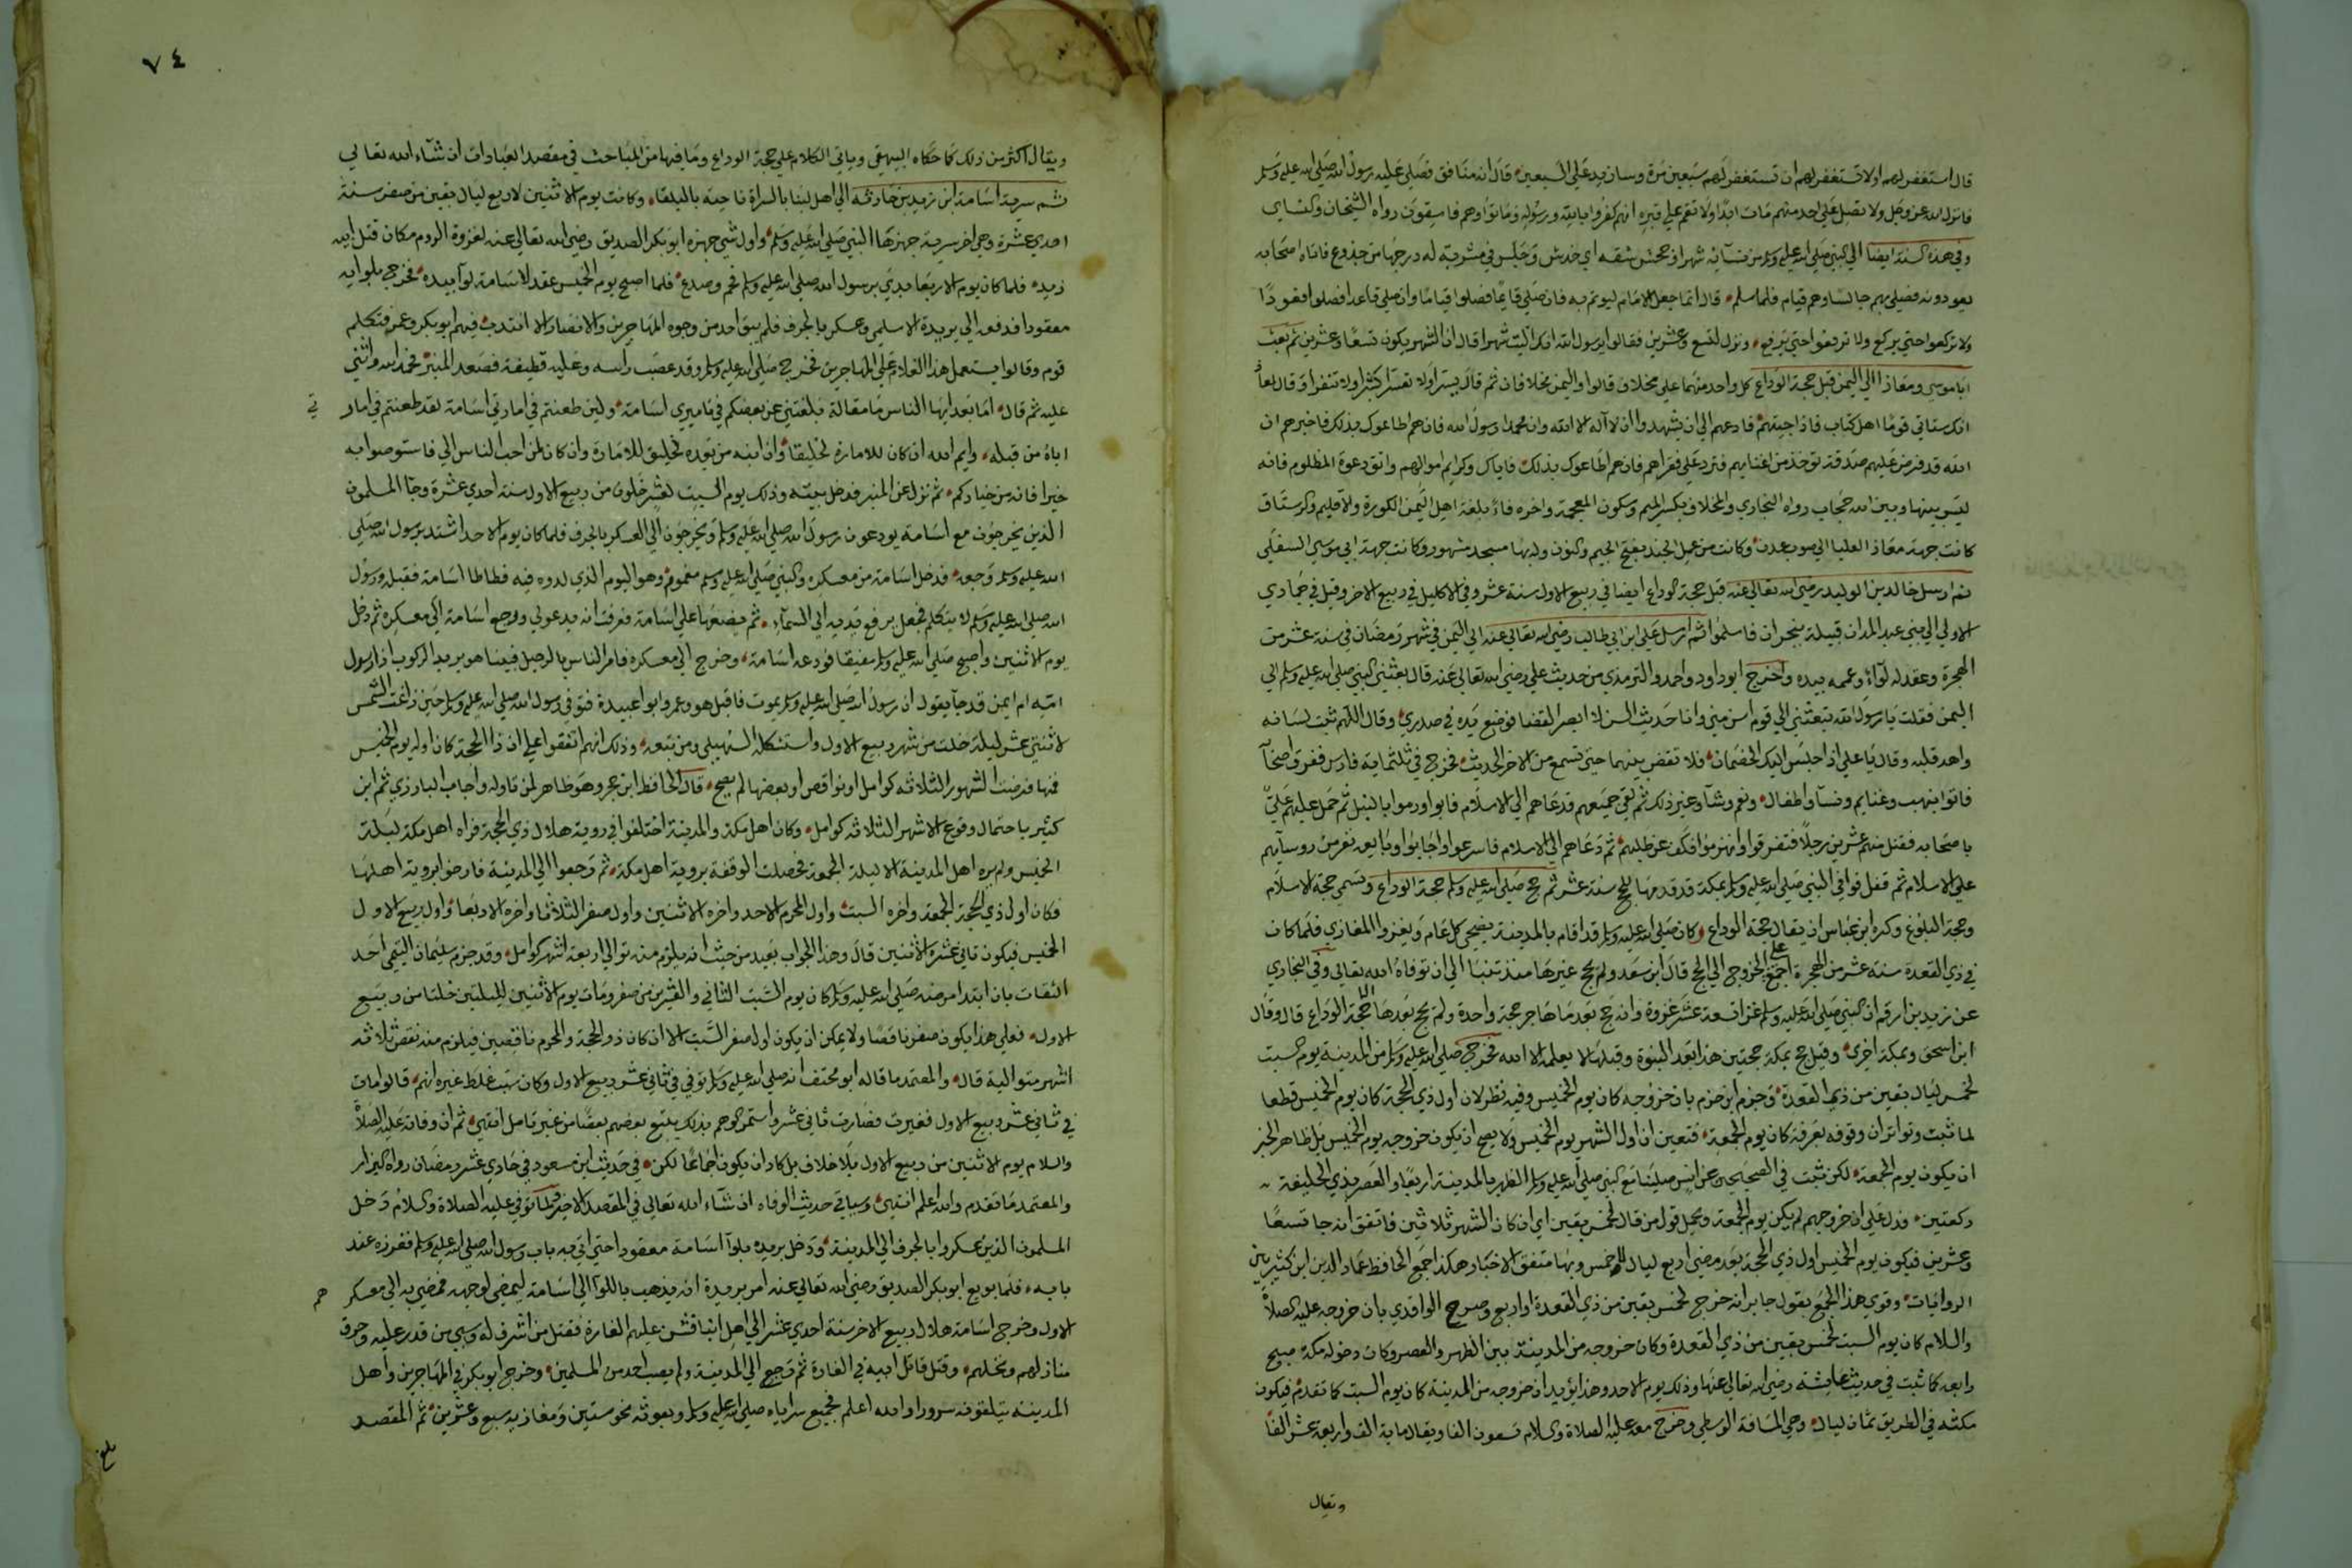 قال استغفر لهم او لا تستغفر لهم ان تستغفر لهم سبعين مرة وسازيد على السبعين قال انه منافق فصلى عليه رسول الله صلى الله عليه وسلم
فانزل الله عز وجل ولا تصل على احد منهم مات ابدا ولا تقم على قبره انهم كفروا بالله ورسوله وماتوا وهم فاسقون رواه الشيخان والنساي
وفي هذه السنة ايضا الى النبي صلى الله عليه وسلم من نسائه شهرا وجحش شقه اي خدش وجلس في مشربة له درجها من جذوع فاتاه اصحابه
يعودونه فصلى بهم جالسا وهم قيام فلما سلم قال انما جعل الامام ليوتم به فان صلى قايما فصلوا قياما وان صلى قاعدا فصلوا قعودا
ولا تركعوا حتى يركع ولا ترفعوا حتى يرفع ونزل لتسع وعشرين فقالوا يرسول الله انك اليت شهرا قال ان الشهر يكون تسعا وعشرين ثم بعث
ابا موسى ومعاذا الى اليمن قبل حجة الوداع كل واحد منهما على مخلاف قالوا واليمن مخلافان ثم قال يسرا ولا تعسرا وبشرا ولا تنفرا وقال لمعاذ
انك ستاتي قوما اهل كتاب فاذا جيتهم فادعهم الى ان يشهدوا ان لا اله الا الله وان محمدا رسول الله فان هم اطاعوك بذلك فاخبرهم ان
الله قد فرض عليهم صدقة توخذ من اغنيايهم فترد على فقراهم فان هم اطاعوك بذلك فاياك وكرايم اموالهم واتق دعوة المظلوم فانه
ليس بينها وبين الله حجاب رواه البخاري والمخلاف بكسر الميم وسكون المعجمة واخره فاء بلغة اهل اليمن الكورة والاقليم والرستاق
كانت جهة معاذ العليا الى صوب عدن وكانت من عمل الجند بفتح الجيم والنون وله بها مسجد مشهور وكانت جهة ابي موسى السفلى
ثم ارسل خالد بن الوليد رضى الله تعالى عنه قبل حجة الوداع ايضا في ربيع الاول سنة عشر وفي الاكليل في ربيع الاخر وقيل في جمادي
الاولي الي بني عبد المدان قبيلة بنجران فاسلموا ثم ارسل على ابن ابي طالب رضى الله تعالى عنه الى اليمن في شهر رمضان في سنة عشر من
الهجرة وعقد له لواء وعممه بيده واخرج ابو داود واحمد والترمذي من حديث علي رضى الله تعالى عنه قال بعثني النبي صلى الله عليه وسلم الى
اليمن فقلت يا رسول الله تبعثني الى قوم اسن مني وانا حديث السن لا ابصر القضا فوضع يده في صدري وقال اللهم ثبت لسانه
واهد قلبه وقال يا علي اذا جلس اليك الخصمان فلا تقض بينهما حتى تسمع من الاخر الحديث فخرج في ثلثماية فارس ففرق اصحابه
فاتوا بنهب وغنايم ونساء واطفال ونعم وشاء وغير ذلك ثم لقي جميعهم فدعاهم الى الاسلام فابوا ورموا بالنبل ثم حمل عليهم علي
باصحابه فقتل منهم عشرين رجلا فتفرقوا وانهزموا فكف عن طلبهم ثم دعاهم الى الاسلام فاسرعوا واجابوا وبايعه نفر من روسايهم
على الاسلام ثم قفل فوافي النبي صلى الله عليه وسلم بمكة قد قدمها للحج سنة عشر ثم حج صلى الله عليه وسلم حجة الوداع وتسمي حجة الاسلام
وحجة البلاغ وكره ابن عباس ان يقال حجة الوداع وكان صلى الله عليه وسلم قد اقام بالمدينة يضحي كل عام ويغزوا المغازي فلما كان
في ذي القعدة سنة عشر من الهجرة اجمع على الخروج الى الحج قال ابن سعد ولم يحج غيرها منذ تنبا الى ان توفاه الله تعالى وفي البخاري
عن زيد بن ارقم ان النبي صلى الله عليه وسلم غزا تسعة عشر غزوة وانه حج بعد ما هاجر حجة واحدة ولم يحج بعدها حجة الوداع قال وقال
ابن اسحق وبمكة اخرى وقيل حج بمكة حجتين هذا بعد النبوة وقبلها لا يعلمه الا الله فخرج صلى الله عليه وسلم من المدينة يوم السبت
لخمس ليال بقين من ذي القعدة وجزم ابن حزم بان خروجه كان يوم الخميس وفيه نظر لان اول ذي الحجة كان يوم الخميس قطعا
لما ثبت وتواتر ان وقوفه بعرفة كان يوم الجمعة فتعين ان اول الشهر يوم الخميس ولا يصح ان يكون خروجه يوم الخميس بل ظاهر الخبر
ان يكون يوم الجمعة لكن ثبت في الصحيحين عن انس صلينا مع النبي صلى الله عليه وسلم الظهر بالمدينة اربعا والعصر بذي الحليفة
ركعتين فدل على ان خروجهم لم يكن يوم الجمعة ويحمل قول من قال لخمس بقين اي ان كان الشهر ثلاثين فاتفق ان جا تسعا
وعشرين فيكون يوم الخميس اول ذي الحجة بعد مضي اربع ليال لا خمس وبها متفق الاخبار هكذا جمع الحافظ عماد الدين ابن كثير بين
الروايات وقوي هذا الجمع بقول جابر انه خرج لخمس بقين من ذي القعدة او اربع وصرح الواقدي بان خروجه عليه الصلاة
والسلام كان يوم السبت لخمس بقين من ذي القعدة وكان خروجه من المدينة بين الظهر والعصر وكان دخوله مكة صبح
رابعه كما ثبت في حديث عايشة رضى الله تعالى عنها وذلك يوم الاحد وهذا يؤيد ان خروجه من المدينة كان يوم السبت كما تقدم فيكون
مكثه في الطريق ثمان ليال وهي المسافة الوسطي وخرج معه عليه الصلاة والسلام تسعون الفا ويقال ماية الف واربعة عشر الفا
ويقال
٧٤
ويقال اكثر من ذلك كما حكاه البيهقي وياتي الكلام على حجة الوداع وما فيها من المباحث في مقصد العبادات ان شاء الله تعالى
ثم سرية اسامة ابن زيد بن حارثة الى اهل ابنا بالسراة ناحية بالبلقا وكانت يوم الاثنين لاربع ليال بقين من صفر سنة
احدي عشرة وهي اخر سرية جهزها النبي صلى الله عليه وسلم واول شي جهزه ابو بكر الصديق رضى الله تعالى عنه لغزوة الروم مكان قتل ابيه
زيد فلما كان يوم الاربعا بدي برسول الله صلى الله عليه وسلم فحم وصدع فلما اصبح يوم الخميس عقد لاسامة لواء بيده فخرج بلوايه
معقودا فدفعه الى بريدة الاسلمي وعسكر بالجرف فلم يبق احد من وجوه المهاجرين والانصار الا انتدب فيهم ابو بكر وعمر فتكلم
قوم وقالوا يستعمل هذا الغلام على المهاجرين فخرج صلى الله عليه وسلم وقد عصب راسه وعليه قطيفة فصعد المنبر فحمد الله واثني
عليه ثم قال اما بعد ايها الناس ما مقالة بلغتني عن بعضكم في تاميري اسامة ولين طعنتم في امارتي اسامة لقد طعنتم في امار
تي
اباه من قبله وايم الله ان كان للامارة لخليقا وان ابنه من بعده لخليق للامارة وان كان لمن احب الناس الي فاستوصوا به
خيرا فانه من خياركم ثم نزل عن المنبر فدخل بيته وذلك يوم السبت لعشر خلون من ربيع الاول سنة احدي عشرة وجا المسلمون
الذين يخرجون مع اسامة يودعون رسول الله صلى الله عليه وسلم ويخرجون الى العسكر بالجرف فلما كان يوم الاحد اشتد برسول الله صلى
الله عليه وسلم وجعه فدخل اسامة من معسكره والنبي صلى الله عليه وسلم مغمور وهو اليوم الذي لدوه فيه فطاطا اسامة فقبله ورسول
الله صلى الله عليه وسلم لا يتكلم فجعل يرفع يديه الى السماء ثم يضعها على اسامة فعرفت انه يدعو لي ورجع اسامة الى معسكره ثم دخل
يوم الاثنين واصبح صلى الله عليه وسلم مفيقا فودعه اسامة وخرج الى معسكره فامر الناس بالرحيل فبينا هو يريد الركوب اذا رسول
امه ام ايمن قد جا يقول ان رسول الله صلى الله عليه وسلم يموت فاقبل هو وعمر وابو عبيدة فتوفي رسول الله صلى الله عليه وسلم حين زاغت الشمس
لاثنتي عشر ليلة خلت من شهر ربيع الاول واستشكله السهيلي ومن تبعه وذلك انهم اتفقوا على ان ذا الحجة كان اوله يوم الخميس
فمها فرضت الشهور الثلاثة كوامل او نواقص او بعضها لم يصح قال الحافظ ابن حجر وهو ظاهر لمن تاوله واجاب البارزي ثم ابن
كثير باحتمال وقوع الاشهر الثلاثة كوامل وكان اهل مكة والمدينة اختلفوا في روية هلال ذي الحجة فراه اهل مكة ليلة
الخميس ولم يره اهل المدينة الا ليلة الجمعة فحصلت الوقفة بروية اهل مكة ثم رجعوا الى المدينة فارخوا بروية اهلها
فكان اول ذي الحجة الجمعة واخره السبت واول المحرم الاحد واخره الاثنين واول صفر الثلاثا واخره الاربعا واول ربيع الاول
الخميس فيكون ثاني عشره الاثنين قال وهذا الجواب بعيد من حيث انه يلزم منه توالي اربعة اشهر كوامل وقد جزم سليمان التيمي احد
الثقات بان ابتدا مرضه صلى الله عليه وسلم كان يوم السبت الثاني والعشرين من صفر ومات يوم الاثنين لليلتين خلتا من ربيع
الاول فعلى هذا يكون صفر ناقصا ولا يمكن ان يكون اول صفر السبت الا ان كان ذو الحجة والمحرم ناقصين فيلزم منه نقص ثلاثة
اشهر متوالية قال والمعتمد ما قاله ابو مخنف انه صلى الله عليه وسلم توفي في ثاني عشر ربيع الاول وكان سبب غلط غيره انهم قالوا مات
في ثاني عشر ربيع الاول فغيرت فصارت ثاني عشر واستمر الوهم بذلك يتبع بعضهم بعضا من غير تامل انتهي ثم ان وفاته عليه الصلاة
والسلام يوم الاثنين من ربيع الاول بلا خلاف بل كاد ان يكون اجماعا لكن في حديث ابن مسعود في حادي عشر رمضان رواه البزار
والمعتمد ما تقدم والله اعلم انتهي وسياتي حديث الوفاه ان شاء الله تعالى في المقصد الاخير فلما توفي عليه الصلاة والسلام دخل
المسلمون الذين عسكروا بالجرف الى المدينة ودخل بريده بلواء اسامة معقودا حتى اتي به باب رسول الله صلى الله عليه وسلم فغرزه عند
بابه فلما بويع ابو بكر الصديق رضى الله تعالى عنه امر بريدة ان يذهب باللواء الى اسامة ليمضي لوجهه فمضي به الى معسكر
هم
الاول وخرج اسامة هلال ربيع الاخر سنة احدي عشر الى اهل ابنا فشن عليهم الغارة فقتل من اشرف له وسبي من قدر عليه وحرق
منازلهم ونخلهم وقتل قاتل ابيه في الغارة ثم رجع الى المدينة ولم يصب احد من المسلمين وخرج ابو بكر في المهاجرين واهل
المدينة يتلقونه سرورا والله اعلم فجميع سراياه صلى الله عليه وسلم وبعوثه نحو ستين ومغازيه سبع وعشرين ثم المقصد
بلغ